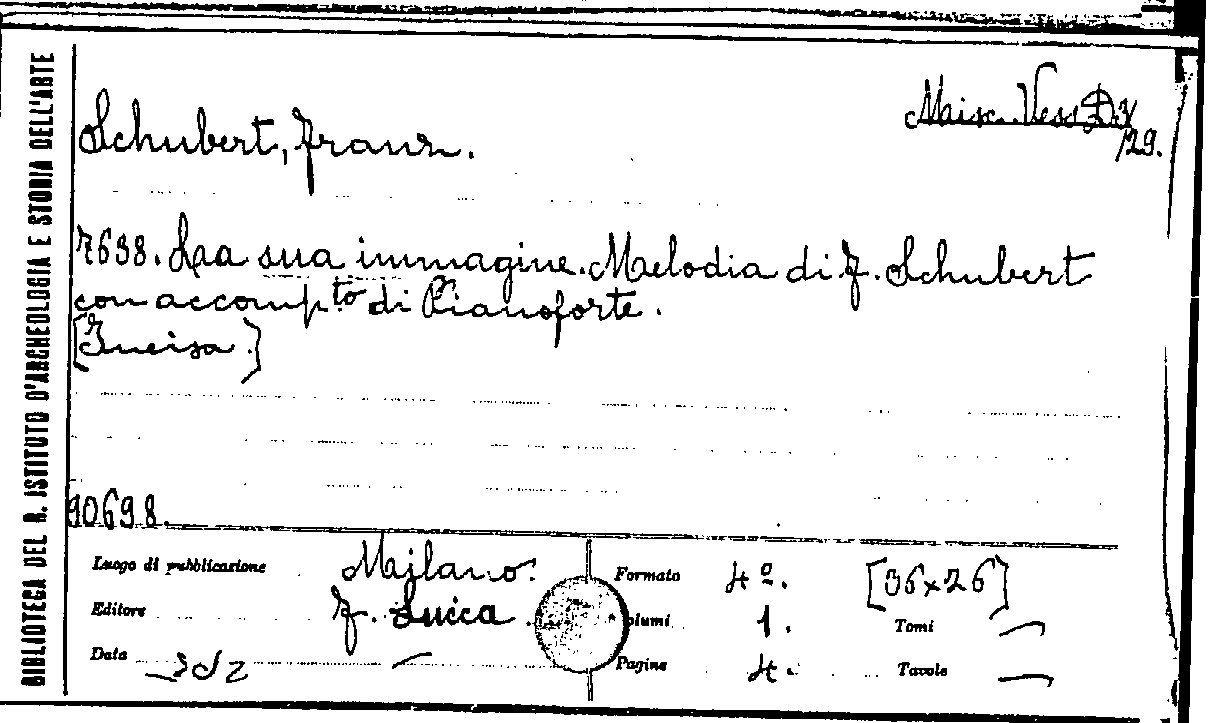 BIBLIOTECA DEL R. ISTITUTO D'ARCHEOLOGIA E STORIA DELL'ARTE
Misc. Vess
/29.
Schubert, Franz.
7638. La sua immagine. Melodia di F. Schubert
con accompto di Pianoforte.
[Incisa.]
90698.
Luogo di pubblicazione Milano.
Editore F. Lucca
Data —
Formato 4º. [36x26]
Volumi 1. Tomi —
Pagine 4. Tavole —